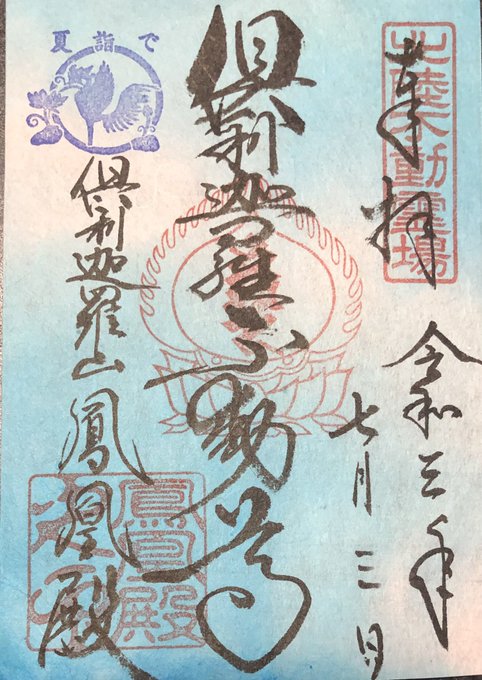 北陸不動霊場
奉拝
令和三年
七月三日
倶利迦羅不動尊
倶利迦羅山
鳳凰殿
夏詣で